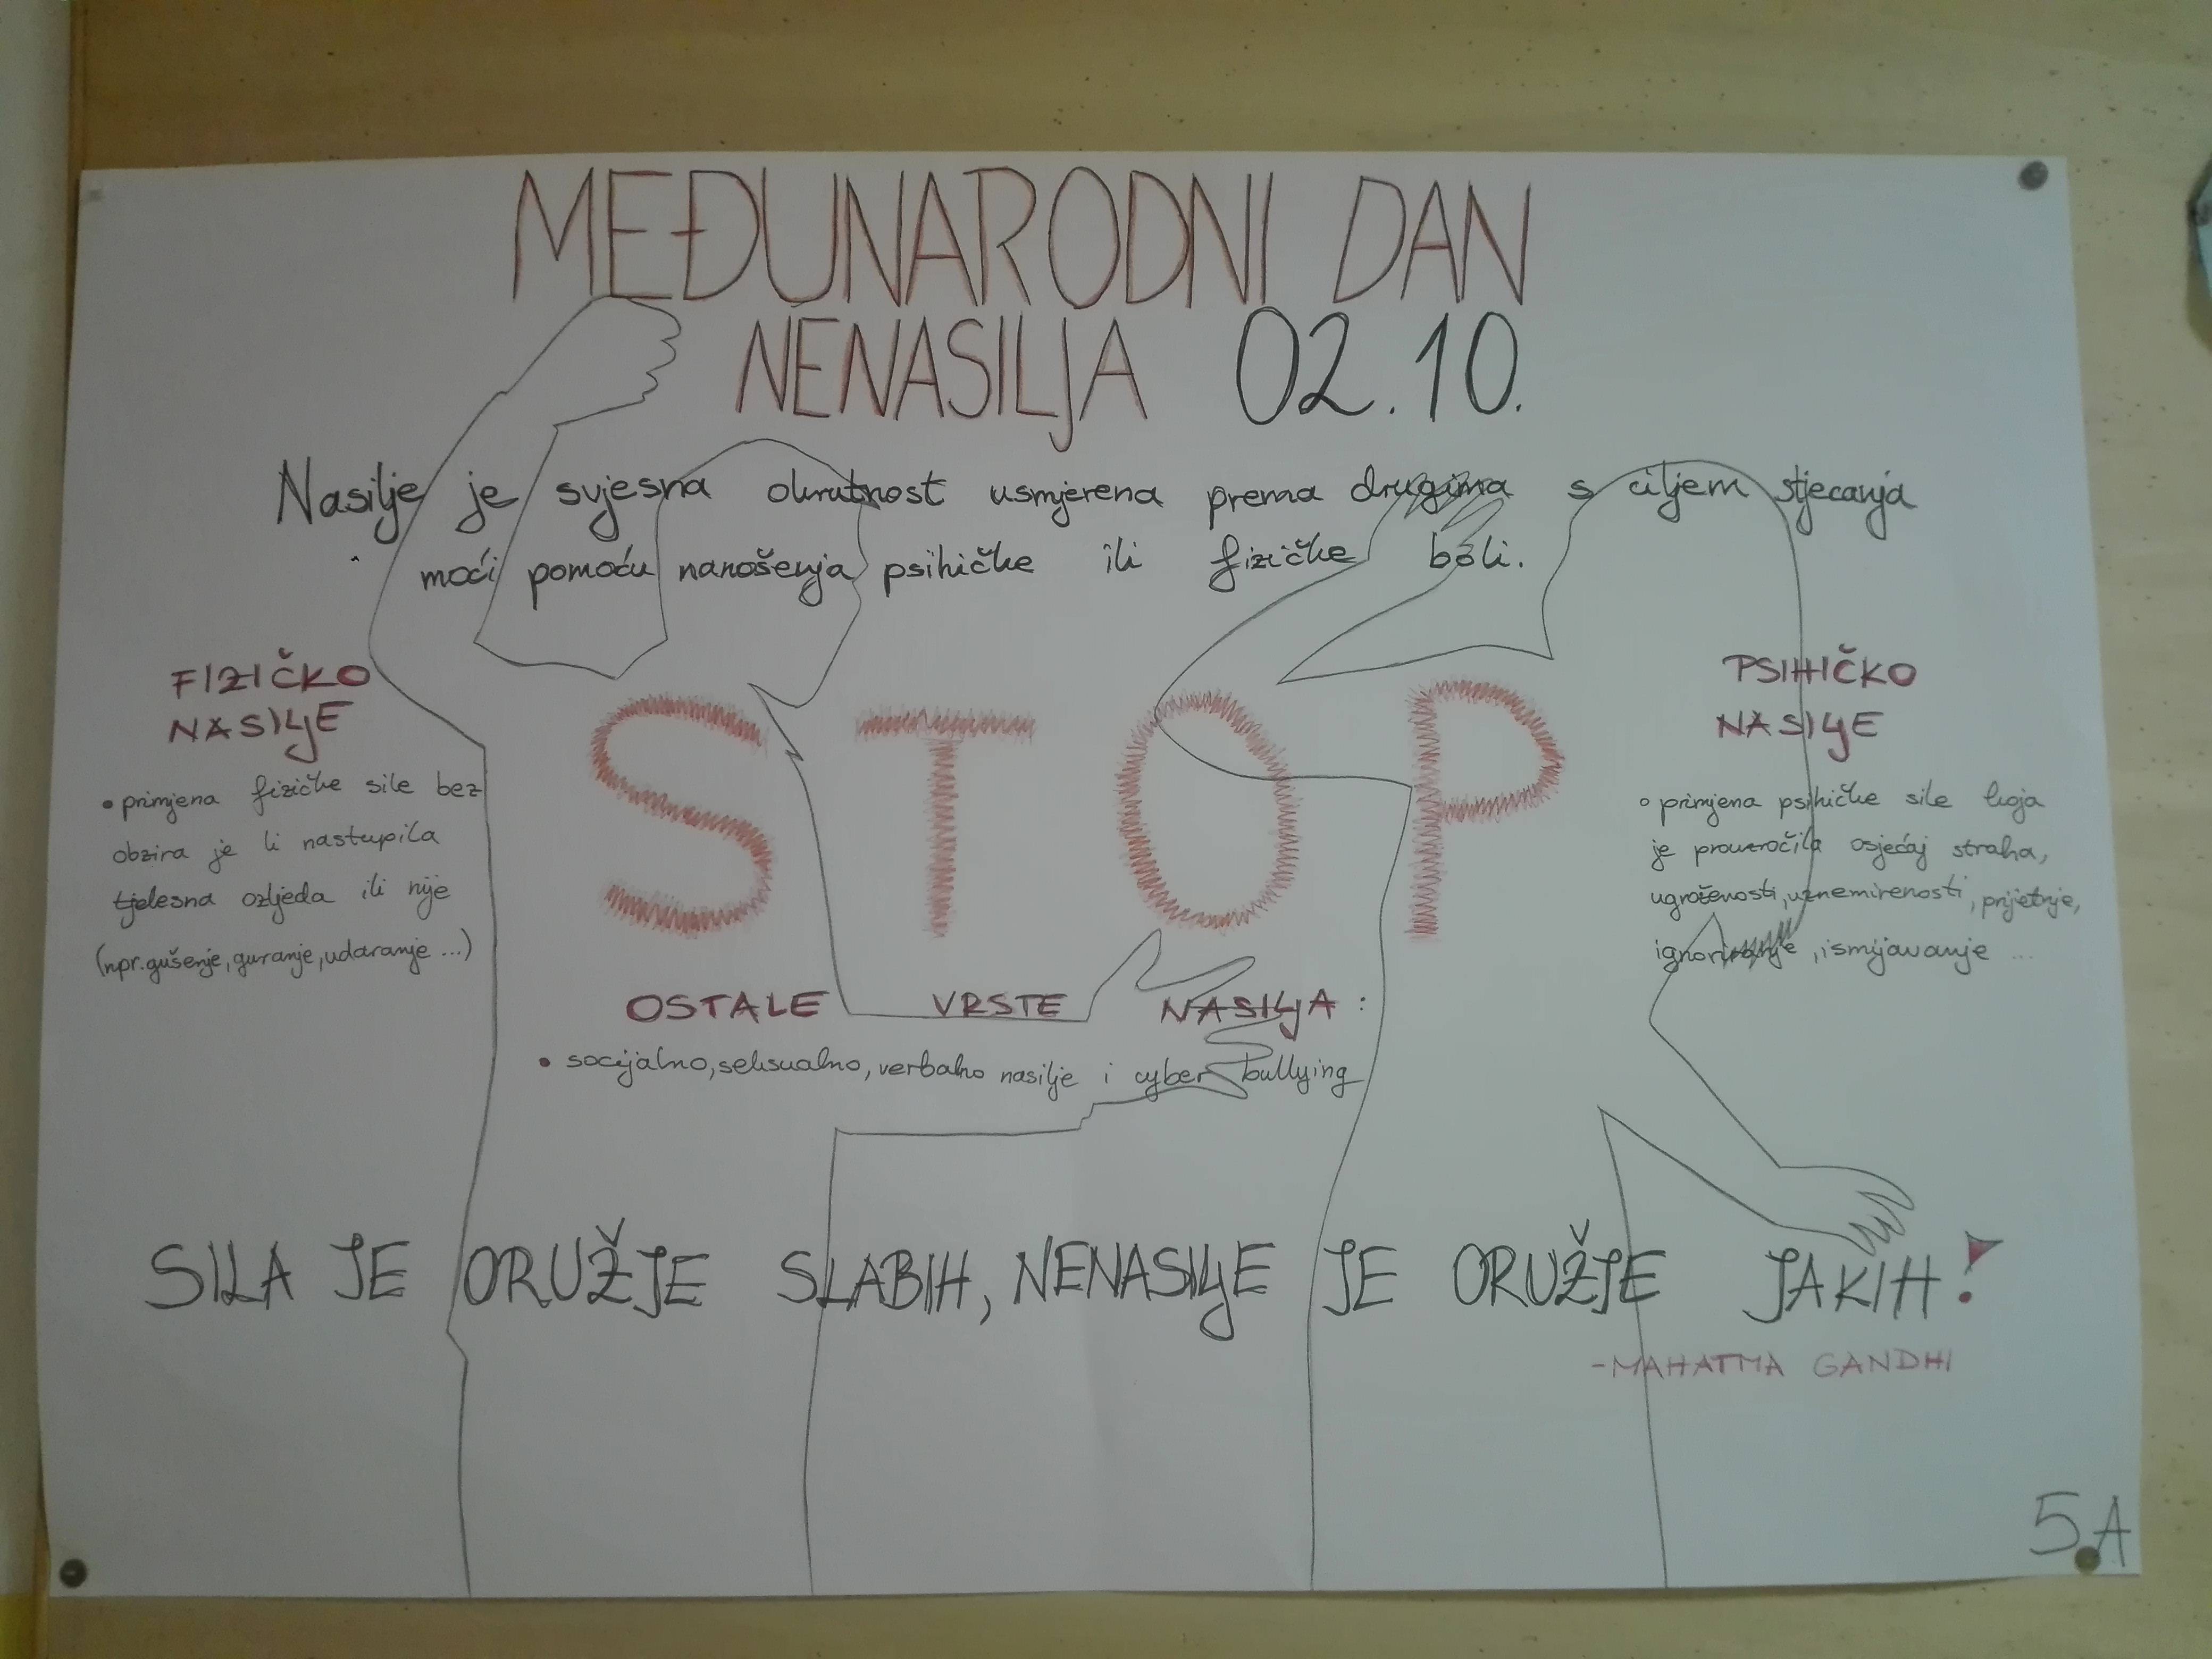 MEĐUNARODNI DAN
NENASILJA 02.10.
Nasilje je svjesna okrutnost usmjerena prema drugima s ciljem stjecanja
moći pomoću nanošenja psihičke ili fizičke boli.
FIZIČKO
NASILJE
• primjena fizičke sile bez
obzira je li nastupila
tjelesna ozljeda ili nije
(npr. gušenje, guranje, udaranje ...)
STOP
PSIHIČKO
NASILJE
• primjena psihičke sile koja
je prouzročila osjećaj straha,
ugroženosti, uznemirenosti, prijetnje,
ignoriranje, ismijavanje ...
OSTALE VRSTE NASILJA:
• socijalno, seksualno, verbalno nasilje i cyber bullying
SILA JE ORUŽJE SLABIH, NENASILJE JE ORUŽJE JAKIH!
-MAHATMA GANDHI
5.A